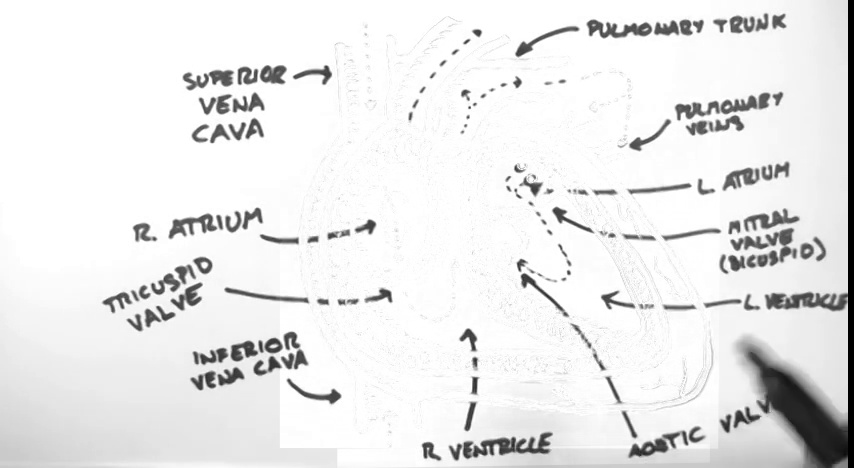 PULMONARY TRUNK
SUPERIOR
VENA
CAVA
PULMONARY
VEINS
L. ATRIUM
R. ATRIUM
MITRAL
VALVE
(BICUSPID)
TRICUSPID
VALVE
L. VENTRICLE
INFERIOR
VENA CAVA
R VENTRICLE
AORTIC VALV